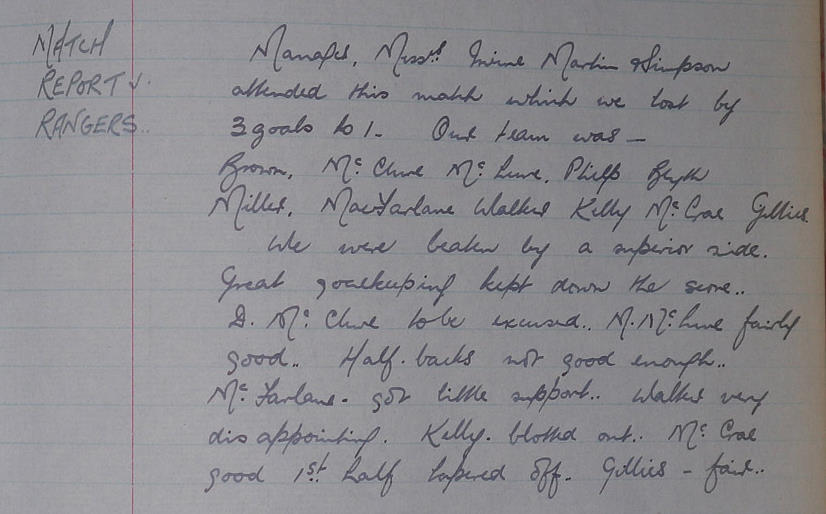 MATCH
REPORTS.
RANGERS..
Manager, Messrs Irvine Martin & Simpson
attended this match which we lost by
3 goals to 1. Our team was —
Brown, Mc Clure Mc Lure, Philp Blyth
Miller, MacFarlane Walker Kelly Mc Crae Gillies.
We were beaten by a superior side.
Great goalkeeping kept down the score..
D. Mc Clure to be excused.. M. Mc Lure fairly
good.. Half. backs not good enough..
Mc Farlane. got little support.. Walker very
disappointing. Kelly. blotted out.. Mc Crae
good 1st half tapered off. Gillies – fair..